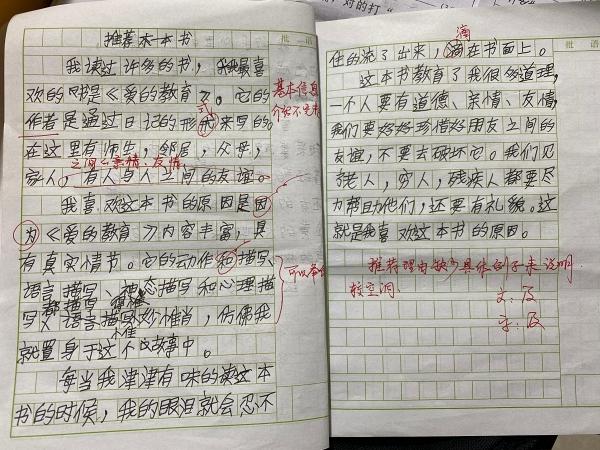 推荐一本书
我读过许多的书，我最喜
欢的书是《爱的教育》。它的
作者是通过日记的形式来写的。
在这里有师生，邻居，父母，
之间的亲情、友情，
家人，有人与人之间的友谊。
我喜欢这本书的原因是因
为《爱的教育》内容丰富，具
有真实情节。它的动作和描写、
语言描写、神态描写和心理描
写，语言描写妙惟肖，仿佛我
就置身于这个故事中。
每当我津津有味的读这本
书的时候，我的眼泪就会忍不
基本信息
介绍不完
可以
批语
住的流了出来，滴在书面上。
滴
这本书教育了我很多道理，
一个人要有道德、亲情、友情，
我们要好好珍惜好朋友之间的
友谊，不要去破坏它。我们见
老人，穷人，残疾人都要尽
力帮助他们，还要有礼貌。这
就是我喜欢这本书的原因。
推荐理由缺少具体例子来说明，
较空洞。
文：及
字：及
批语